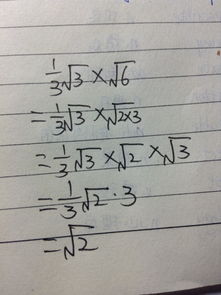 1/3√3×√6
=1/3√3×√2×3
=1/3√3×√2×√3
=1/3√2·3
=√2